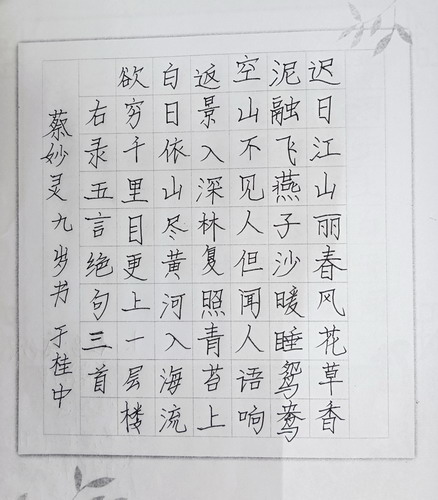 迟日江山丽春风花草香
泥融飞燕子沙暖睡鸳鸯
空山不见人但闻人语响
返景入深林复照青苔上
白日依山尽黄河入海流
欲穷千里目更上一层楼
右录五言绝句三首
蔡妙灵九岁书于桂中